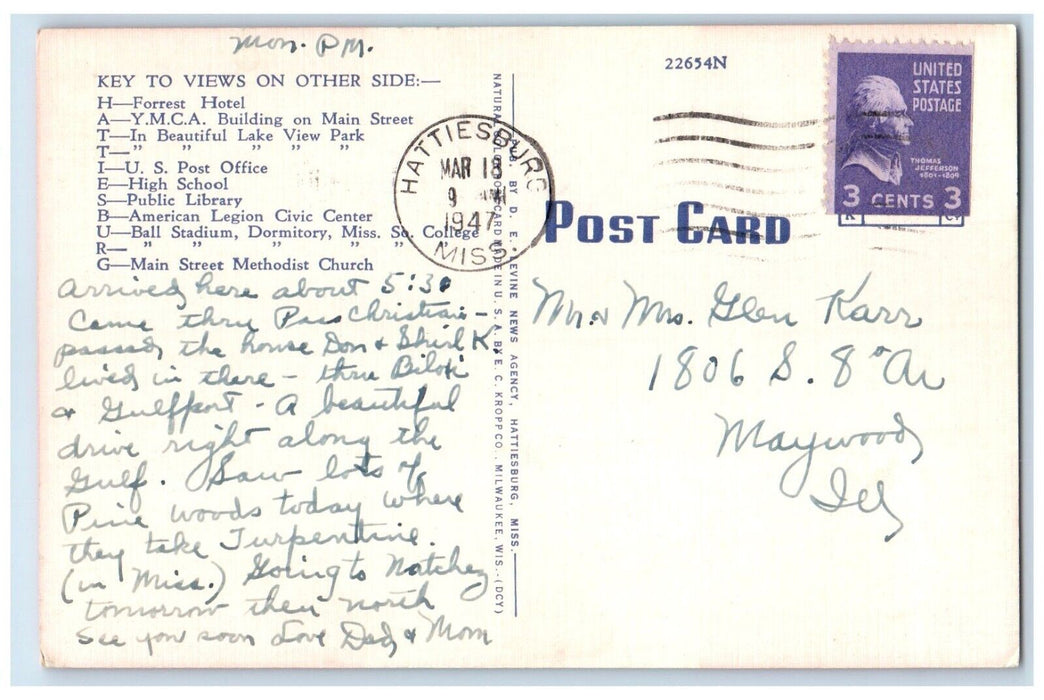 Mon. PM.
KEY TO VIEWS ON OTHER SIDE:—
H—Forrest Hotel
A—Y.M.C.A. Building on Main Street
T—In Beautiful Lake View Park
T— " " " " "
I—U. S. Post Office
E—High School
S—Public Library
B—American Legion Civic Center
U—Ball Stadium, Dormitory, Miss. So. College
R— " " " " "
G—Main Street Methodist Church
arrived here about 5:30
Came thru Pass Christian -
passed the house Don & Shirl K.
lived in there - thru Biloxi
& Gulfport - A beautiful
drive right along the
Gulf. Saw lots of
Pine woods today where
they take Turpentine.
(in Miss.) Going to Natchez
tomorrow then north
See you soon Love Dad & Mom
HATTIESBURG
MAR 18
9 AM
1947
MISS.
PUB. BY D. E. LEVINE NEWS AGENCY, HATTIESBURG, MISS.
NATURAL COLOR POST CARD MADE IN U. S. A. BY E. C. KROPP CO., MILWAUKEE, WIS.-(DCY)
22654N
UNITED
STATES
POSTAGE
THOMAS
JEFFERSON
1801-1809
3 CENTS 3
POST CARD
Mr. & Mrs. Glen Karr
1806 S. 8th Av
Maywood
Ill